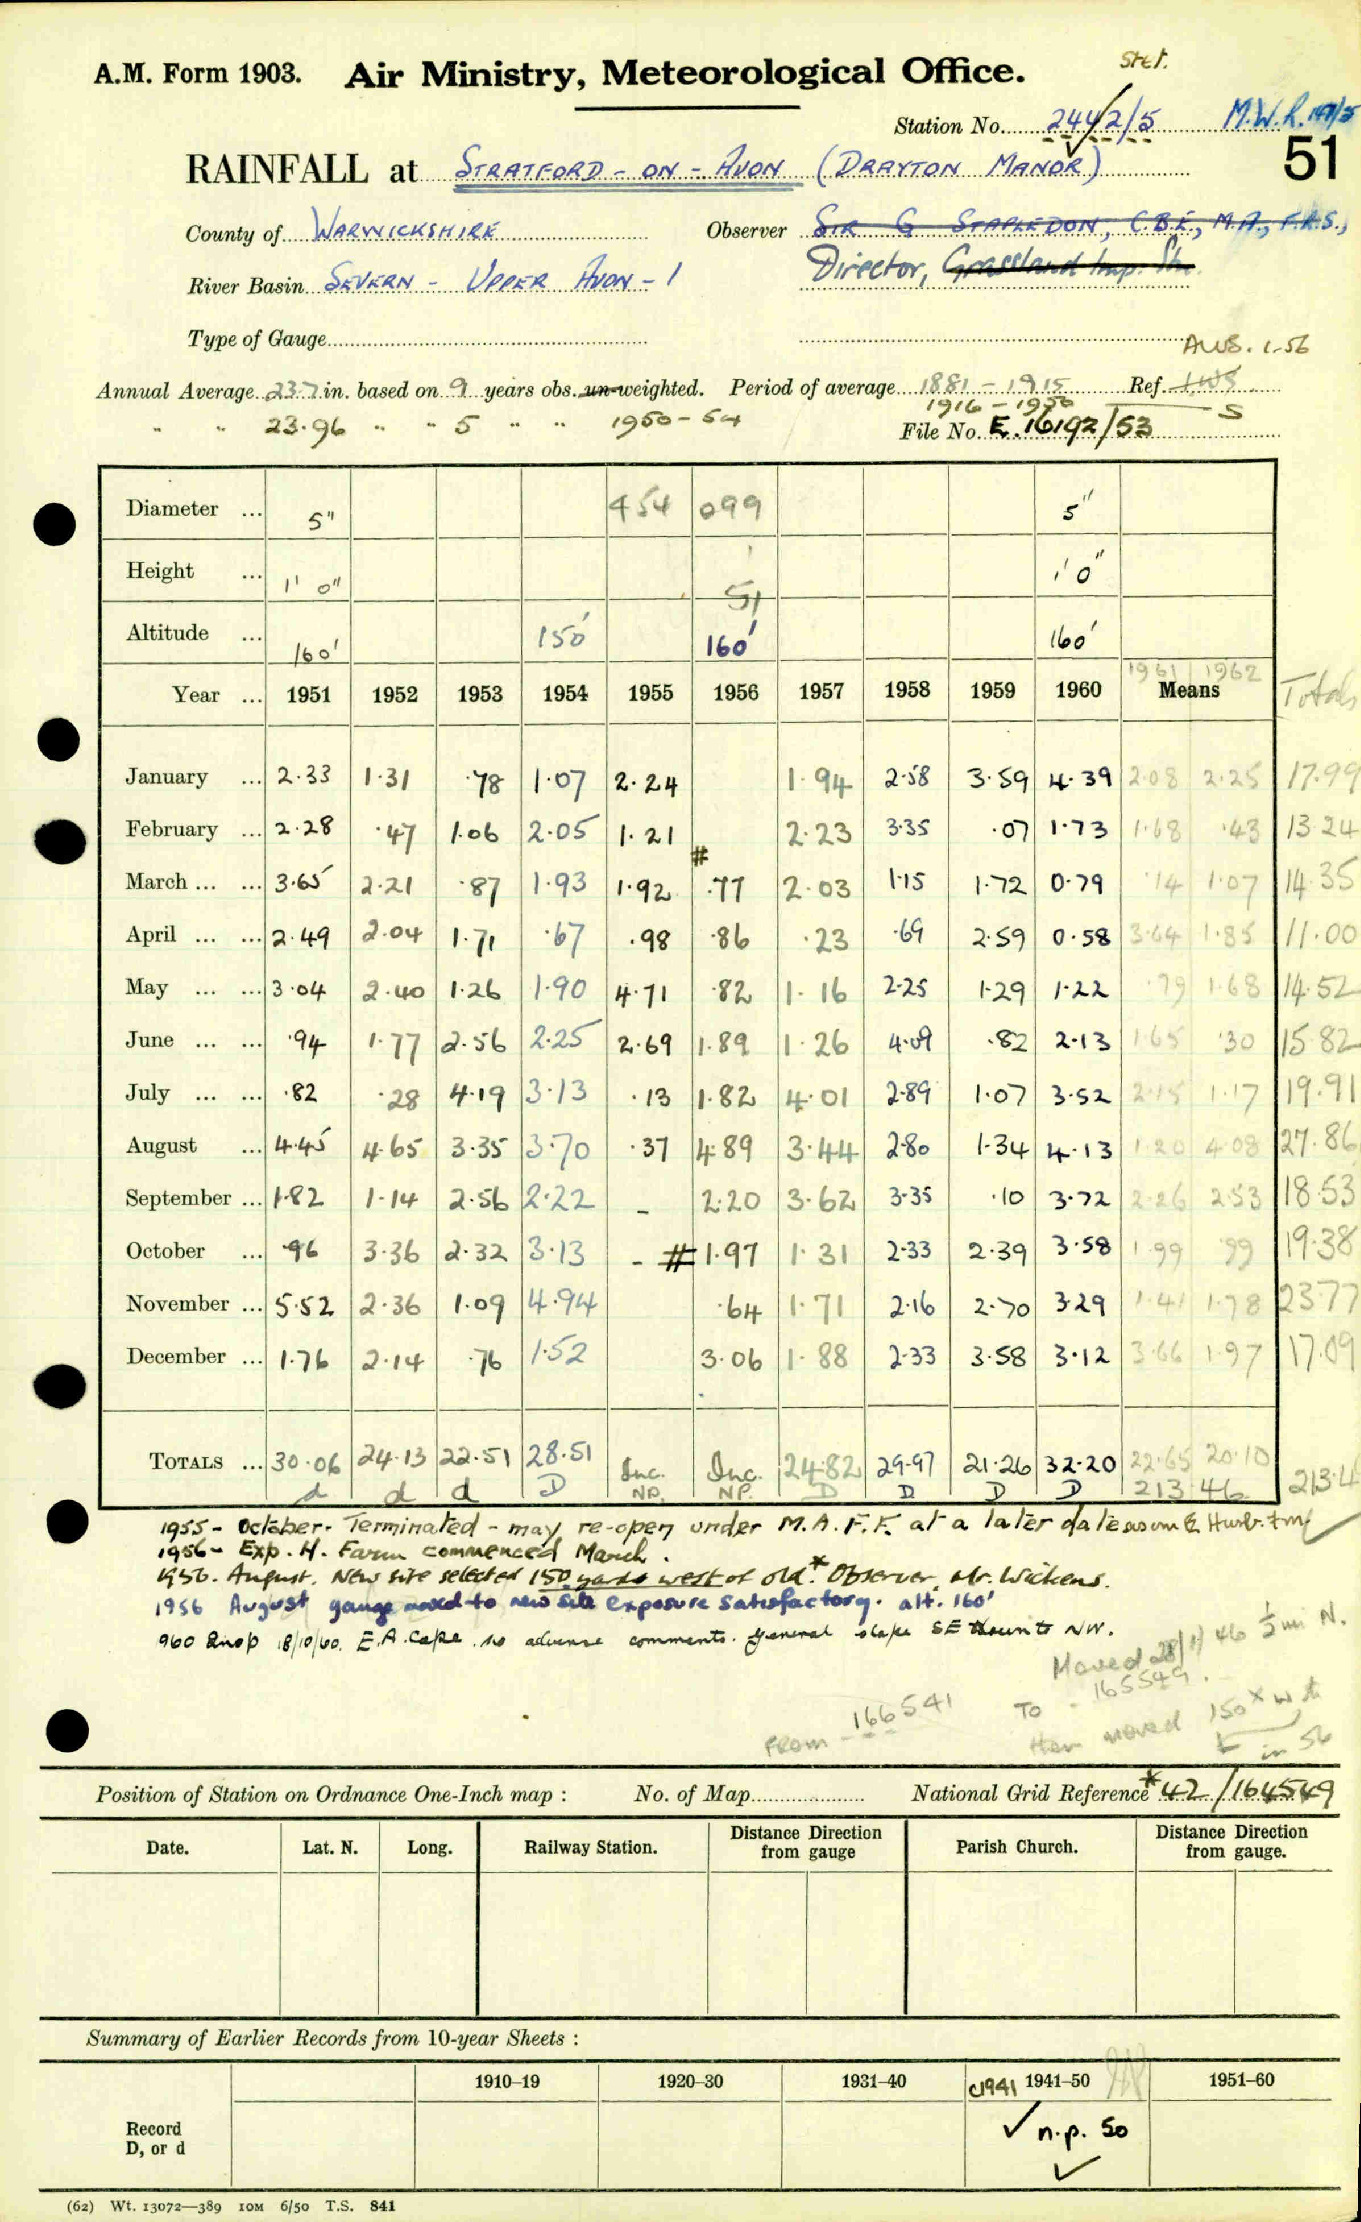 Stet.
A.M. Form 1903. Air Ministry, Meteorological Office.
Station No. 2442/5 M.W.R.
51
RAINFALL at STRATFORD - ON - AVON (DRAYTON MANOR)
County of WARWICKSHIRE Observer SIR G STAPLEDON, C.B.E., M.A., F.R.S.,
River Basin SEVERN - UPPER AVON - 1 Director, Grassland Imp. Stn.
Type of Gauge
AWS. 1.56
Annual Average 23.7 in. based on 9 years obs. un-weighted. Period of average 1881 - 1915 Ref.
1916 - 1950 S
" " 23.96 " " 5 " " 1950 - 54 File No. E. 16192/53
Diameter ... 5" 454 099 5"
Height ... 1' 0" 51 1' 0"
Altitude ... 160' 150' 160' 160'
1961 1962
Year ... 1951 1952 1953 1954 1955 1956 1957 1958 1959 1960 Means Totals
January ... 2.33 1.31 .78 1.07 2.24 1.94 2.58 3.59 4.39 2.08 2.25 17.99
February ... 2.28 .47 1.06 2.05 1.21 2.23 3.35 .07 1.73 1.68 .43 13.24
March ... ... 3.65 2.21 .87 1.93 1.92 # .77 2.03 1.15 1.72 0.79 .14 1.07 14.35
April ... ... 2.49 2.04 1.71 .67 .98 .86 .23 .69 2.59 0.58 3.64 1.85 11.00
May ... ... 3.04 2.40 1.26 1.90 4.71 .82 1.16 2.25 1.29 1.22 .79 1.68 14.52
June ... ... .94 1.77 2.56 2.25 2.69 1.89 1.26 4.09 .82 2.13 1.65 .30 15.82
July ... ... .82 .28 4.19 3.13 .13 1.82 4.01 2.89 1.07 3.52 2.15 1.17 19.91
August ... 4.45 4.65 3.35 3.70 .37 4.89 3.44 2.80 1.34 4.13 1.20 4.08 27.86
September ... 1.82 1.14 2.56 2.22 - 2.20 3.62 3.35 .10 3.72 2.26 2.53 18.53
October ... .96 3.36 2.32 3.13 - # 1.97 1.31 2.33 2.39 3.58 1.99 .99 19.38
November ... 5.52 2.36 1.09 4.94 .64 1.71 2.16 2.70 3.29 1.41 1.78 23.77
December ... 1.76 2.14 .76 1.52 3.06 1.88 2.33 3.58 3.12 3.66 1.97 17.09
TOTALS ... 30.06 24.13 22.51 28.51 Inc. Inc. 24.82 29.97 21.26 32.20 22.65 20.10
d d d D N.P. N.P. D D D D 213.46 213.4
1955 - October. Terminated - may re-open under M.A.F.F. at a later date
1956 - Exp. H. Farm commenced March.
1956. August. New site selected 150 yards west of old.* Observer, Mr. Wickens.
1956 August gauge moved to new site exposure satisfactory. alt. 160'
960 Insp 18/10/60. E.A. Cape. no adverse comments. general slope SE down to NW.
Moved 28/1/46 ½ mi N.
From - 166541 To - 165549.
then moved 150 x W in 56
Position of Station on Ordnance One-Inch map : No. of Map National Grid Reference *42/164549
Date. Lat. N. Long. Railway Station. Distance Direction from gauge Parish Church. Distance Direction from gauge.
Summary of Earlier Records from 10-year Sheets :
1910–19 1920–30 1931–40 c1941 1941–50 1951–60
Record
D, or d
✓ n.p. 50
✓
(62) Wt. 13072—389 10M 6/50 T.S. 841